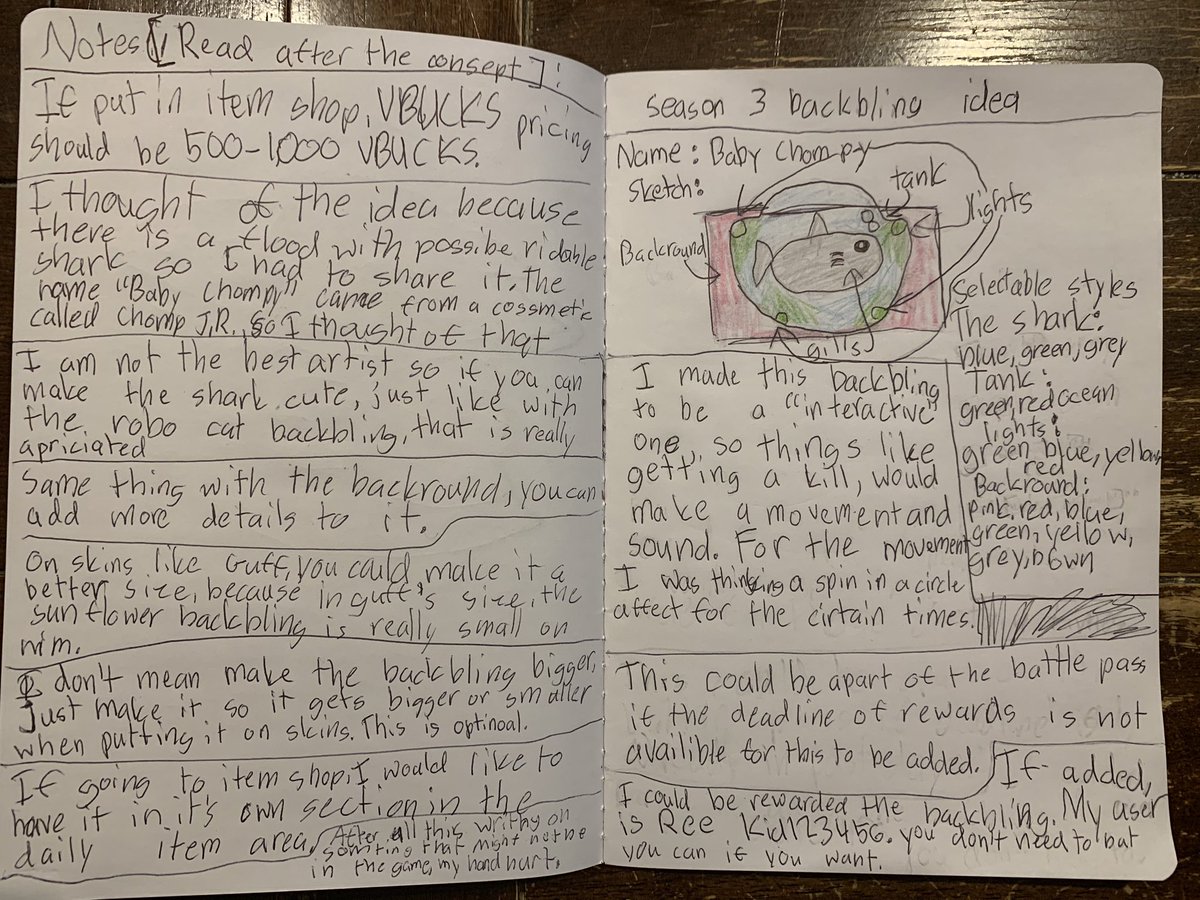 Notes [Read after the consept]:
If put in item shop, VBUCKS pricing
should be 500-1,000 VBUCKS.
I thought of the idea because
there is a flood with possibe ridable
shark so I had to share it. The
name "Baby Chompy" came from a cossmetic
called Chomp J.R. so I thought of that
I am not the best artist so if you can
make the shark cute, just like with
the robo cat backbling, that is really
apriciated
Same thing with the backround, you can
add more details to it.
On skins like Guff, you could make it a
better size, because in guff's size, the
sunflower backbling is really small on
him.
I don't mean make the backbling bigger,
Just make it so it gets bigger or smaller
when putting it on skins. This is optinoal.
If going to item shop, I would like to
have it in it's own section in the
daily item area.
After all this writhy on
somting that might not be
in the game, my hand hurt.
season 3 backbling idea
Name: Baby Chompy
Sketch:
tank
lights
Backround
gills
Selectable styles
The shark:
blue, green, grey
Tank:
green, red ocean
lights:
green, blue, yellow
red
Backround:
pink, red, blue,
green, yellow,
grey, brown
I made this backbling
to be a "interactive"
one, so things like
getting a kill, would
make a movement and
sound. For the movement
I was thinking a spin in a circle
affect for the cirtain times.
This could be apart of the battle pass
if the deadline of rewards is not
availible for this to be added.
If added,
I could be rewarded the backbling. My user
is Ree Kid123456. you don't need to but
you can if you want.